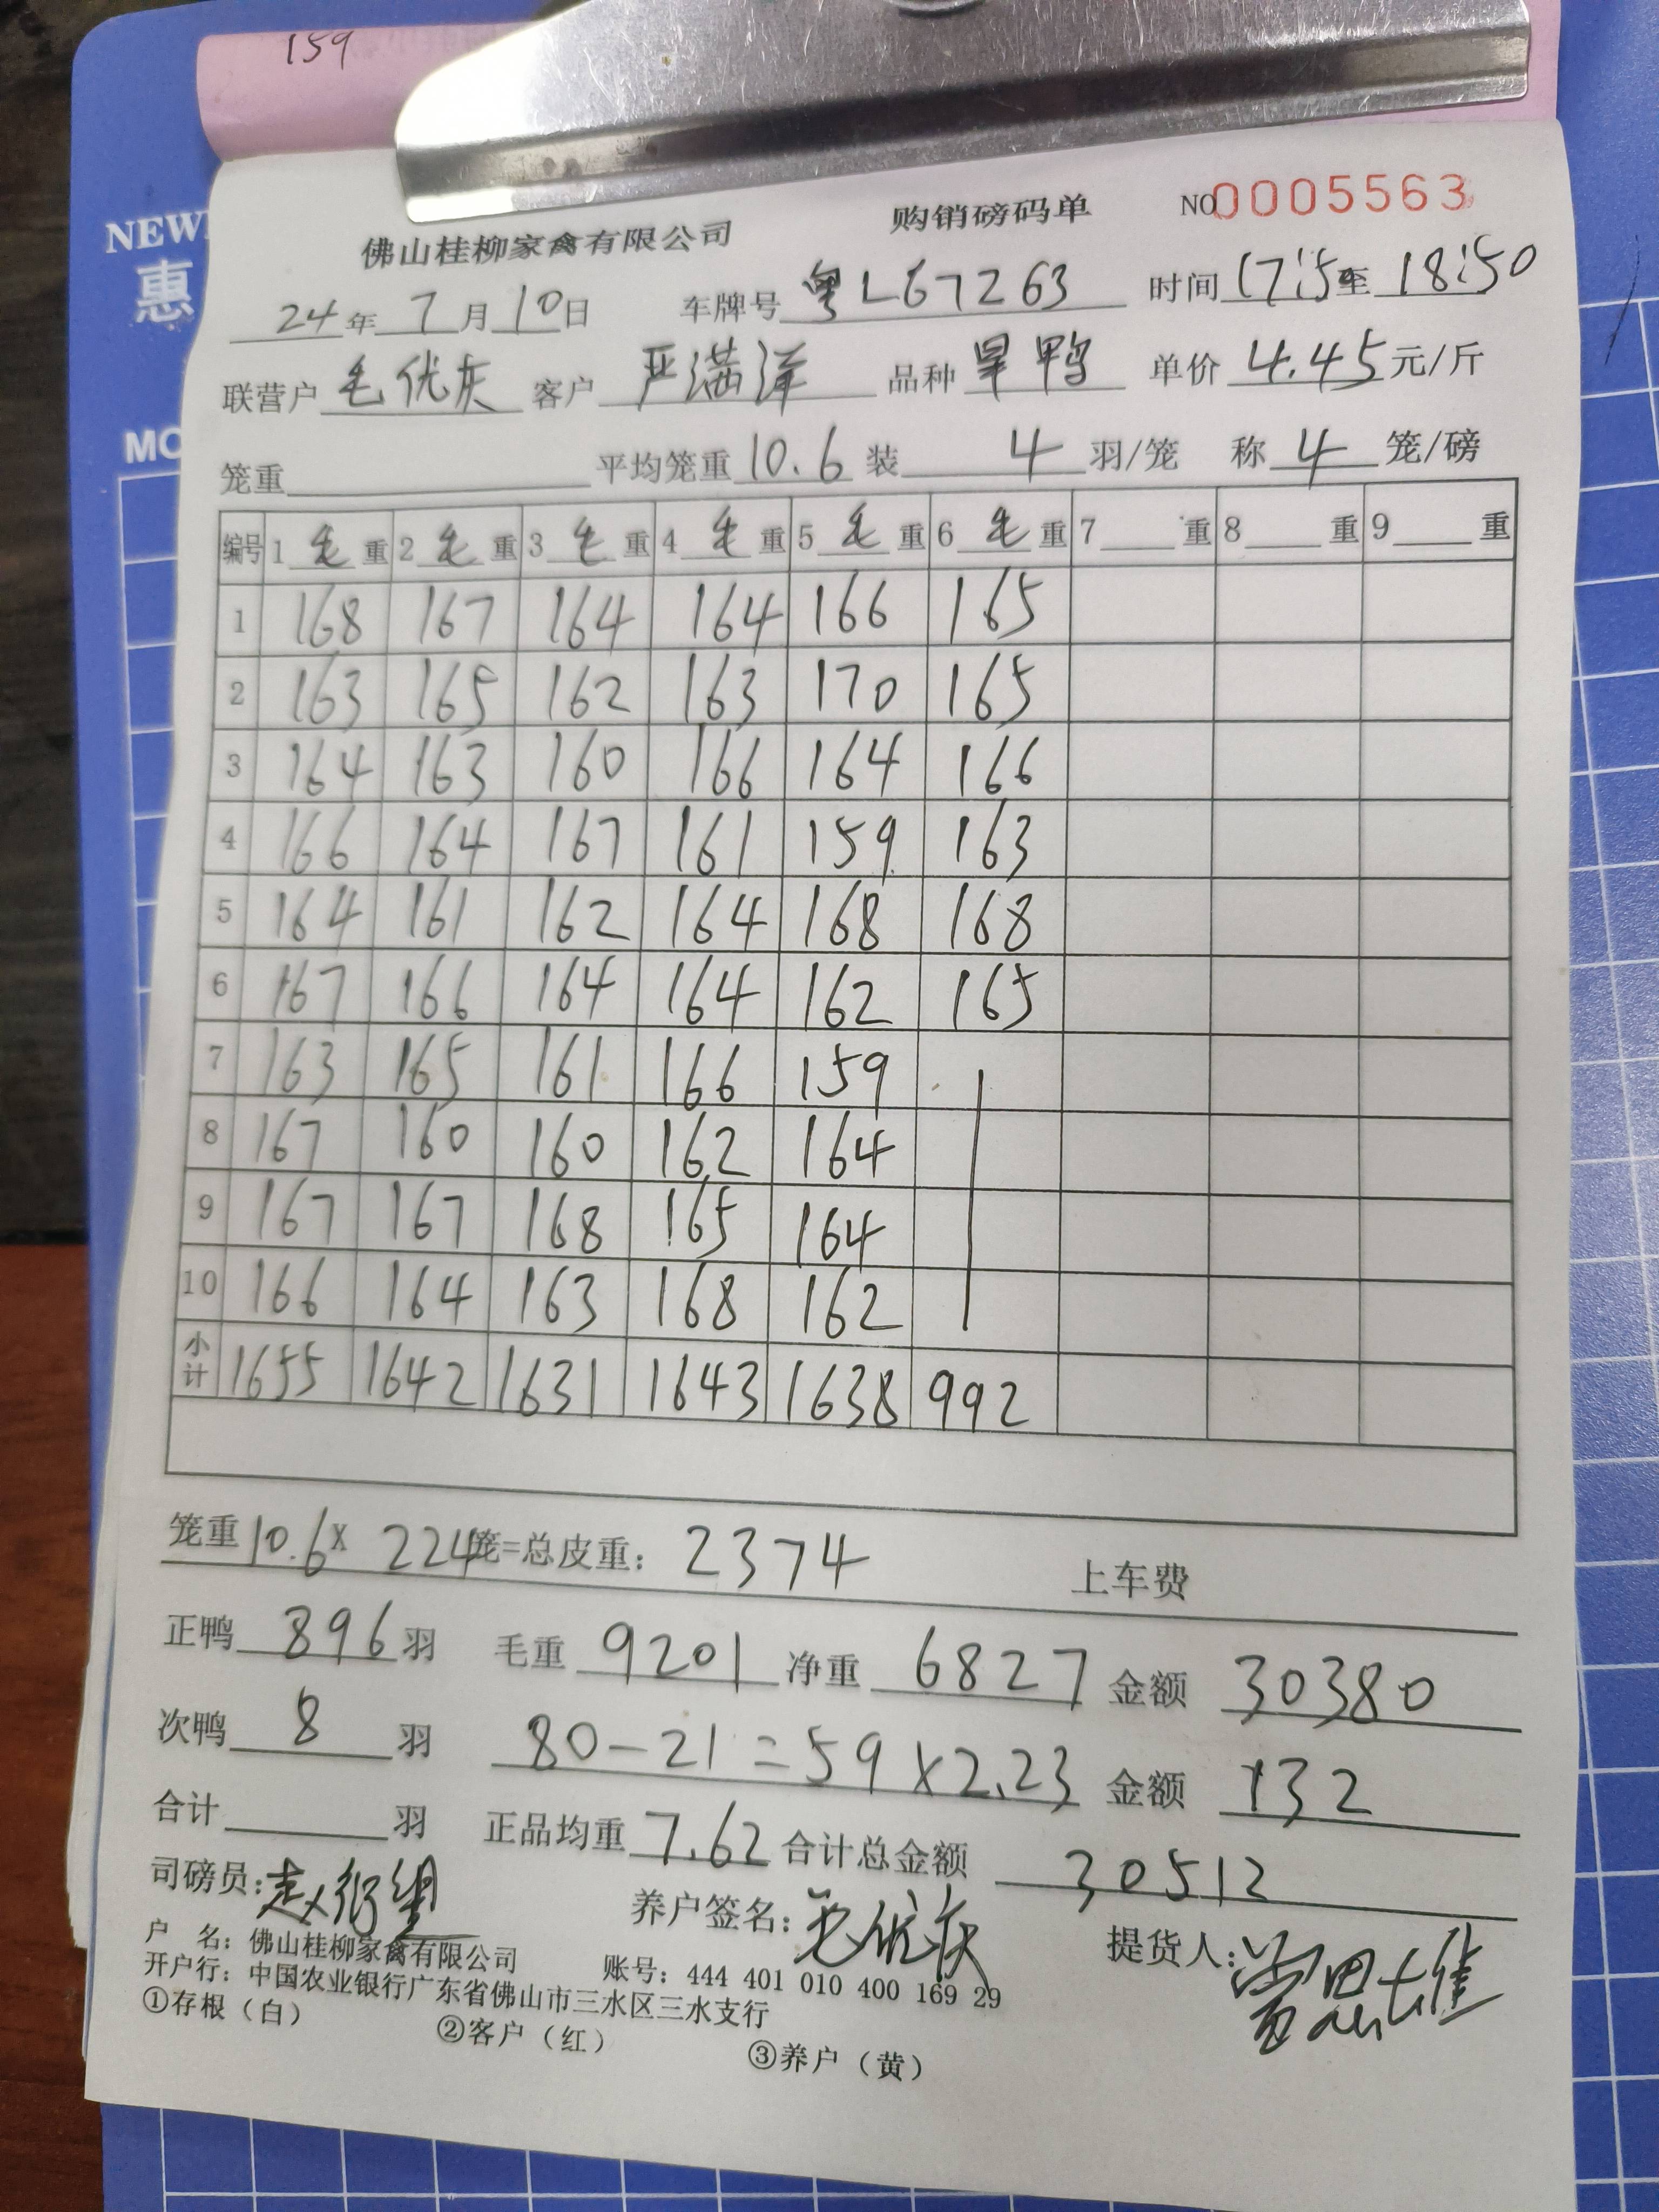 159
NEW
惠
MO
佛山桂柳家禽有限公司 购销磅码单 NO0005563
24年7月10日 车牌号 粤L67263 时间 17:5至18:50
联营户 毛优灰 客户 严满洋 品种 旱鸭 单价 4.45元/斤
笼重 平均笼重 10.6 装 4 羽/笼 称 4 笼/磅
编号 1毛重 2毛重 3毛重 4毛重 5毛重 6毛重 7重 8重 9重
1 168 167 164 164 166 165
2 163 165 162 163 170 165
3 164 163 160 166 164 166
4 166 164 167 161 159 163
5 164 161 162 164 168 168
6 167 166 164 164 162 165
7 163 165 161 166 159
8 167 160 160 162 164
9 167 167 168 165 164
10 166 164 163 168 162
小计 1655 1642 1631 1643 1638 992
笼重10.6X 224笼=总皮重：2374 上车费
正鸭 896 羽 毛重 9201 净重 6827 金额 30380
次鸭 8 羽 80-21=59×2.23 金额 132
合计 羽 正品均重 7.62 合计总金额 30512
司磅员： 养户签名：毛优灰 提货人：
户 名：佛山桂柳家禽有限公司 账号：444 401 010 400 169 29
开户行：中国农业银行广东省佛山市三水区三水支行
①存根（白） ②客户（红） ③养户（黄）